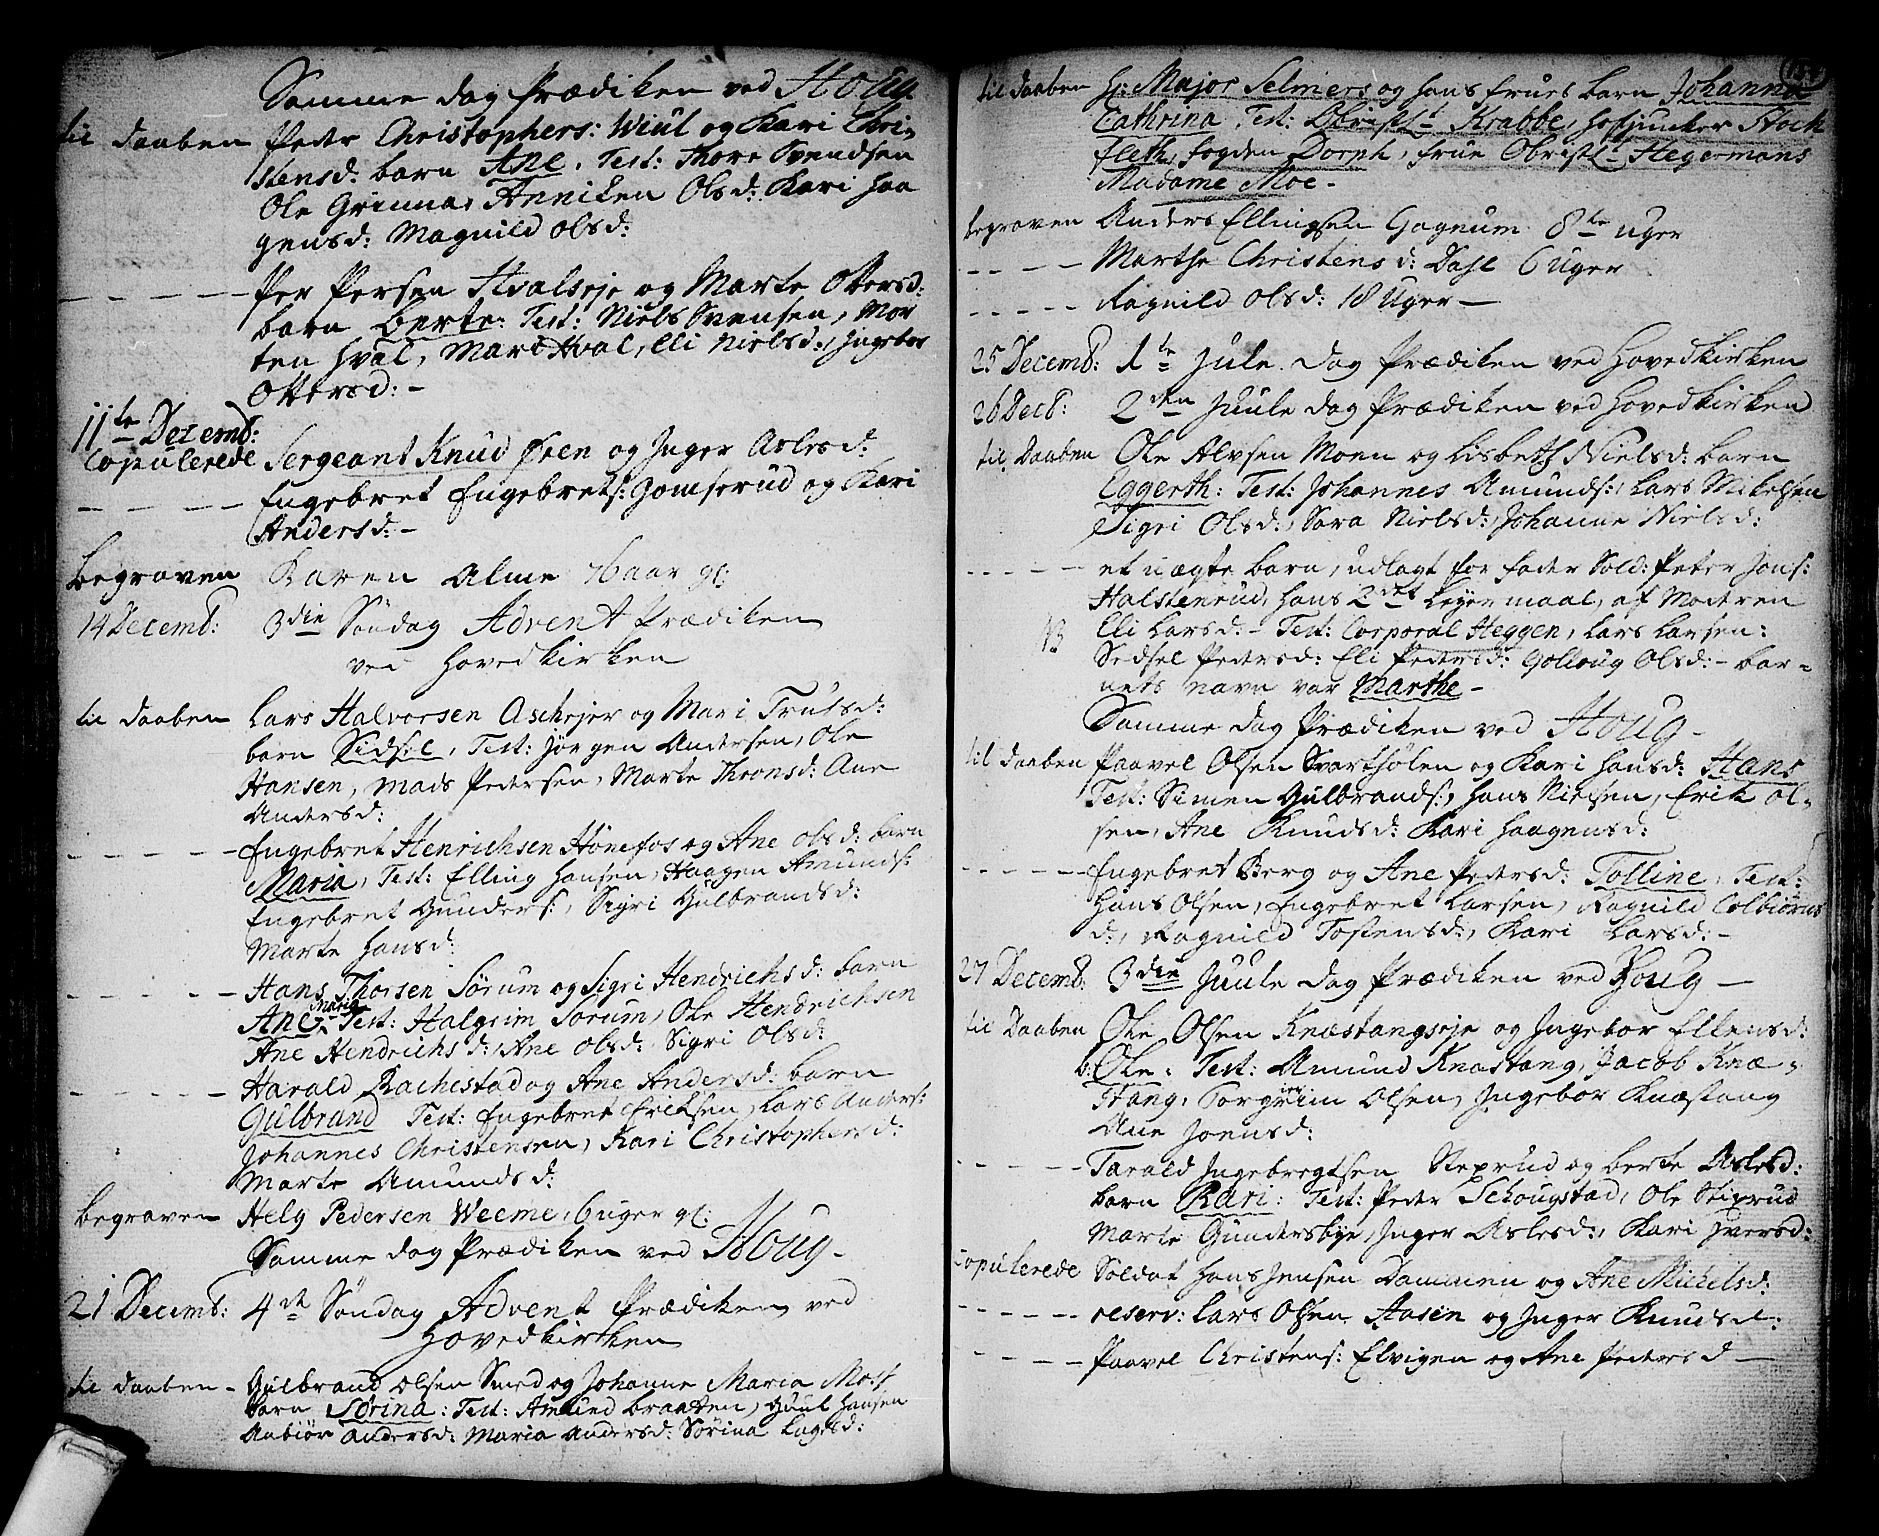 Samme dag Prædiken ved Houg
til daaben Peder Christophers: Wiul og Kari Chri-
stensd: barn Ane, Test: Thore Svendsen
Ole Grinna, Anniken Olsd: Kari Haa
gensd: Magnild Olsd:
- - - - - Per Persen Hvalseje og Marte Ottersd:
barn Berte: Test: Niels Svensen, Mor
ten Hval, Mari Hval, Eli Nielsd:, Ingebor
Ottersd: -
11te Decemb:
Copulerede Sergeant Knud Øren og Inger Aslesd:
- - - - Engebret Engebrets: Gomserud og Kari
Andersd: -
Begraven Karen Alme 76 aar gl:
14 Decemb: 3die Søndag Advent Prædiken
ved Hovedkirken
til daaben Lars Halvorsen Aschejer og Mari Trulsd:
barn Sidsel, Test: Jørgen Andersen, Ole
Hansen, Mads Pedersen, Marte Thronsd: Ane
Andersd:
- - - - - Engebret Henrichsen Hønefos og Ane Olsd: barn
Maria, Test: Elling Hansen, Haagen Amunds:
Engebret Gunders:, Sigri Gulbrandsd:
Marte Hansd:
- - - - - Hans Thorsen Sørum og Sigri Hendrichsd: barn
Ane Maria, Test: Halgrim Sørum, Ole Hendrichsen
Ane Hendrichsd:, Ane Olsd: Sigri Olsd:
- - - - - Harald Rachestad og Ane Andersd: barn
Gulbrand Test: Engebret Eriksen, Lars Anders:
Johannes Christensen, Kari Christophersd:
Marte Amundsd:
Begraven Helg Pedersen Weeme, 6 uger gl:
Samme dag Prædiken ved Houg -
21 Decemb: 4de Søndag Advent Prædiken ved
Hovedkirken
til daaben - Gulbrand Olsen Smed og Johanne Maria Mos:
barn Sørina: Test: Amund Braaten, Juul Hansen
Anbiør Andersd: Maria Andersd: Sørina Lagesd:
til daaben Hr: Major Selmers og hans frues barn Johanna
Cathrina, Test: Obristl:t Krabbe, Hofjuncker Stock
fleth, fogden Dorph, frue Obristl:t Hegermans
Madame Moe -
begraven Anders Ellingsen Gagnum 8te uger
- - - - Marthe Christensd: Dahl 6 uger
- - - - - Ragnild Olsd: 18 Uger -
25 Decemb: 1te Jule dag Prædiken ved Hovedkirken
26 Decb: 2den Juule dag Prædiken ved Hovedkirken
til Daaben Ole Alvsen Moen og Lisbeth Nielsd: barn
Eggerth: Test: Johannes Amunds:, Lars Mikelsen
Sigri Olsd:, Sara Nielsd:, Johanne Nielsd:
- - - - - et uægte barn, udlagt for fader Sold: Peter Jons:
Halstenrud, hans 2det Lejermaal, af Moderen
NB Eli Larsd: - Test: Corporal Heggen, Lars Larsen:
Sedsel Pedersd: Eli Pedersd: Golloug Olsd: - bar-
nets navn var Marthe -
Samme dag Prædiken ved Houg -
til daaben Paavel Olsen Svarthølen og Kari Hansd: Hans
Test: Simen Gulbrands:, Hans Nielsen, Erik Ol-
sen, Ane Knudsd: Kari Haagensd:
- - - - - Engebret Berg og Ane Pedersd: Tolline, Test:
Hans Olsen, Engebret Larsen, Ragnild Colbiørns
d:, Ragnild Tostensd:, Kari Larsd: -
27 Decemb: 3die Juule dag Prædiken ved Houg -
til Daaben Ole Olsen Knæstangseje og Ingebor Ellensd:
b: Ole: Test: Amund Knæstang, Jacob Knæ-
stang, Torgrim Olsen, Ingebor Knæstang
Ane Joensd:
- - - - - Tarald Ingebregtsen Steprud og Berte Aslesd:
barn Kari: Test: Peder Schougstad, Ole Stiprud
Marte Gundersbye, Inger Aslesd:, Kari Iversd:
Copulerede Soldat Hans Jensen Dammen og Ane Michelsd:
- - - - - reserv: Lars Olsen Aasen og Inger Knudsd:
- - - - - Paavel Christens: Elvigen og Ane Pedersd -